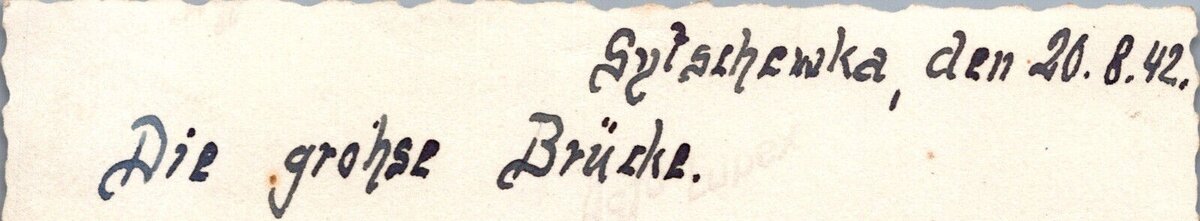 Sytschewka, den 20.8.42.
Die grohse Brücke.